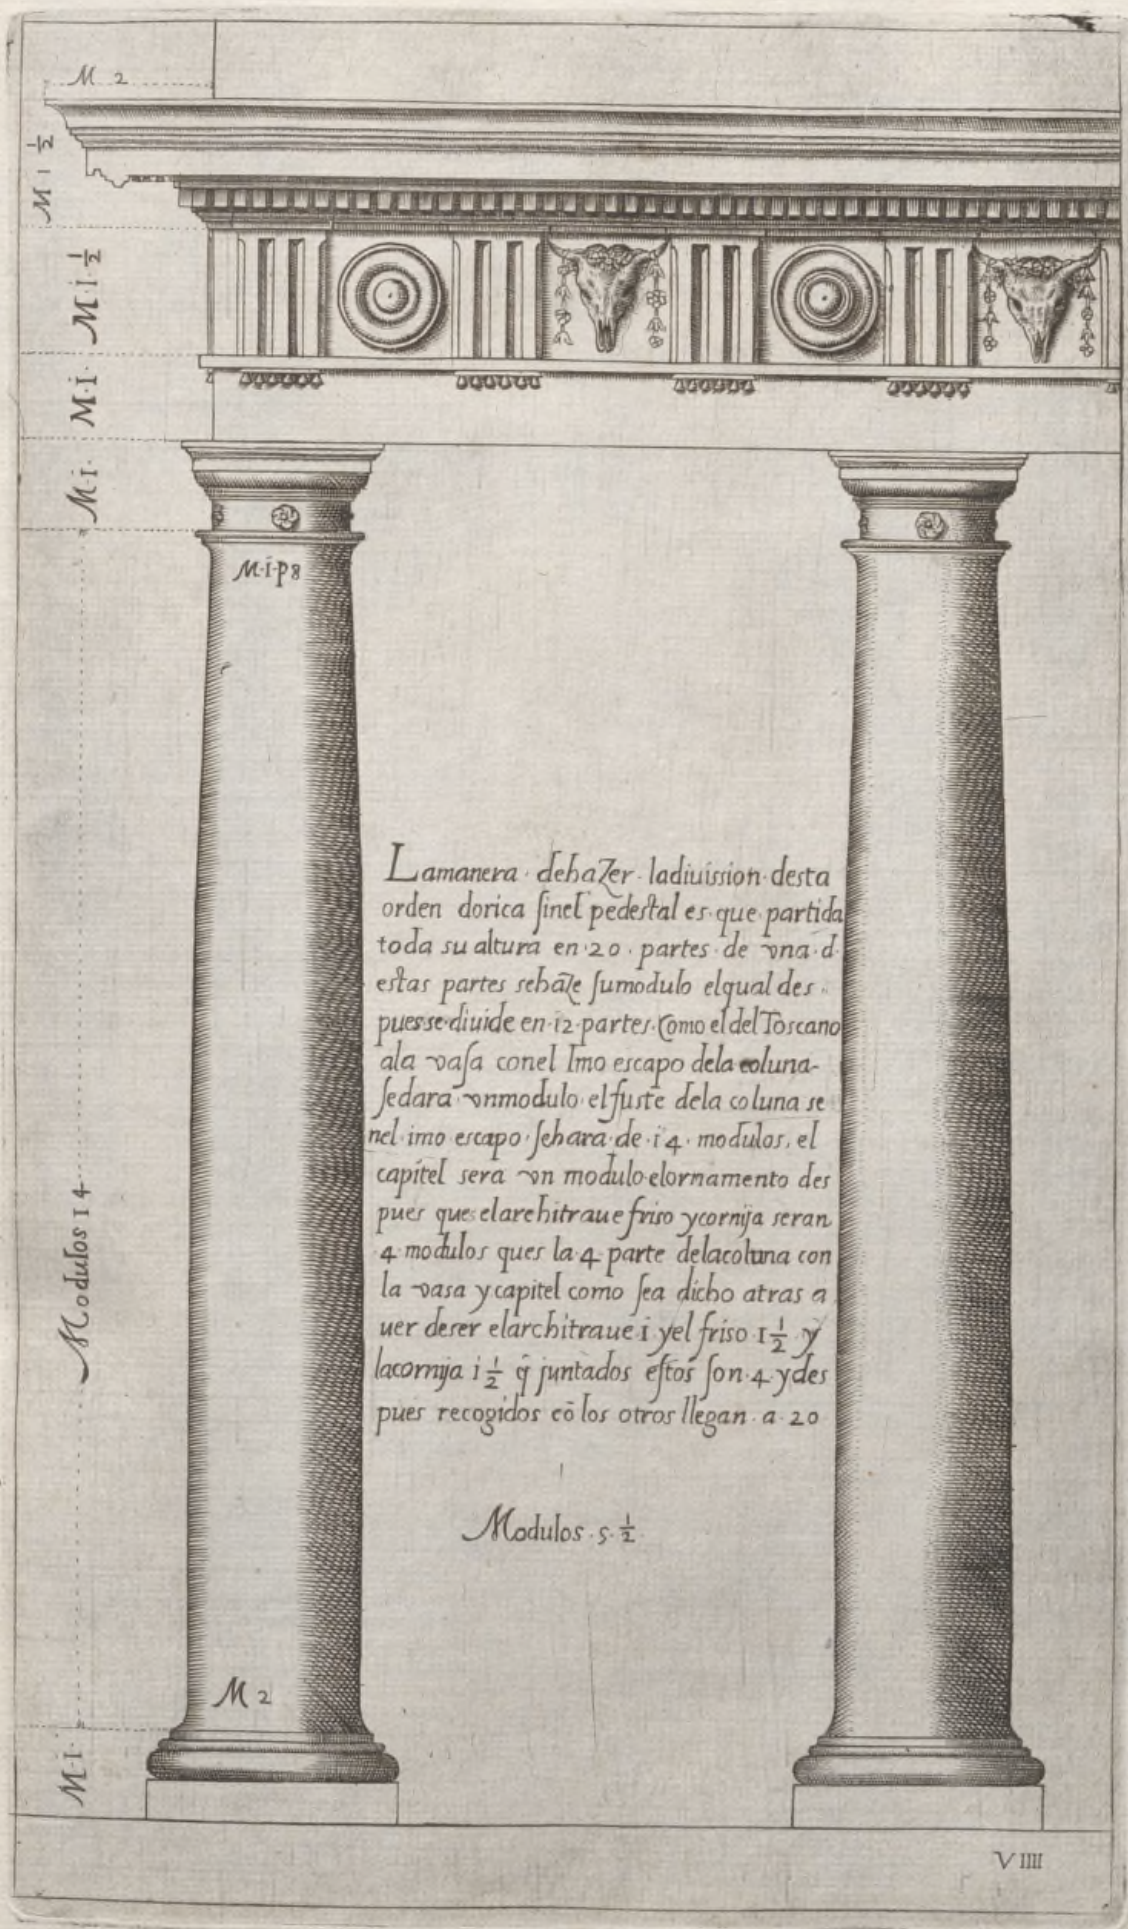 M 2
M 1 1/2
M·i· 1/2
M·I·
M·I·
M·i·p8
Lamanera · dehaZer · ladiuission · desta
orden dorica ſinel pedestal es · que partida
toda su altura en · 20 · partes · de vna · d
estas partes sehaze ſumodulo elqual des ·
puesse · diuide en · i2 · partes · Como el del Toscano
ala vaſa conel Imo escapo dela coluna-
ſedara vnmodulo · el fuste dela coluna se
nel · imo escapo · ſehara · de · i4 · modulos, el
capitel sera vn modulo · elornamento des
pues ques elarchitraue friso ycornija seran
4 · modulos ques la · 4 · parte delacoluna con
la vasa y capitel como ſea dicho atras a
uer deser elarchitraue i · yel friso · 1 1/2 · y
lacornija i 1/2 q̃ juntados estos ſon · 4 · ydes
pues recogidos cō los otros llegan · a · 20
Modulos 14
Modulos · 5 · 1/2
M 2
M·I·
VIIII